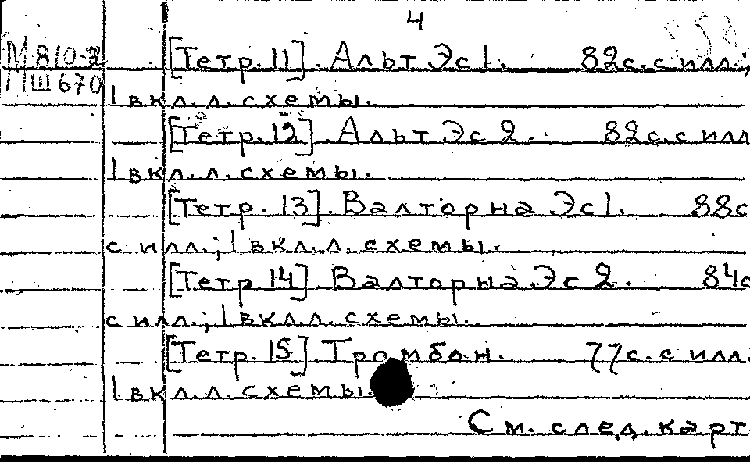 4
М 810-2 [Тетр. 11]. Альт Эс 1. 82 с. с илл.;
МШ 670
1 вкл. л. схемы.
[Тетр. 12]. Альт Эс 2. 82 с. с илл
1 вкл. л. схемы.
[Тетр. 13]. Валторна Эс 1. 88 с
с илл.; 1 вкл. л. схемы.
[Тетр. 14]. Валторна Эс 2. 84 с
с илл.; 1 вкл. л. схемы.
[Тетр. 15]. Тромбон. 77 с. с илл.
1 вкл. л. схемы
См. след. карт